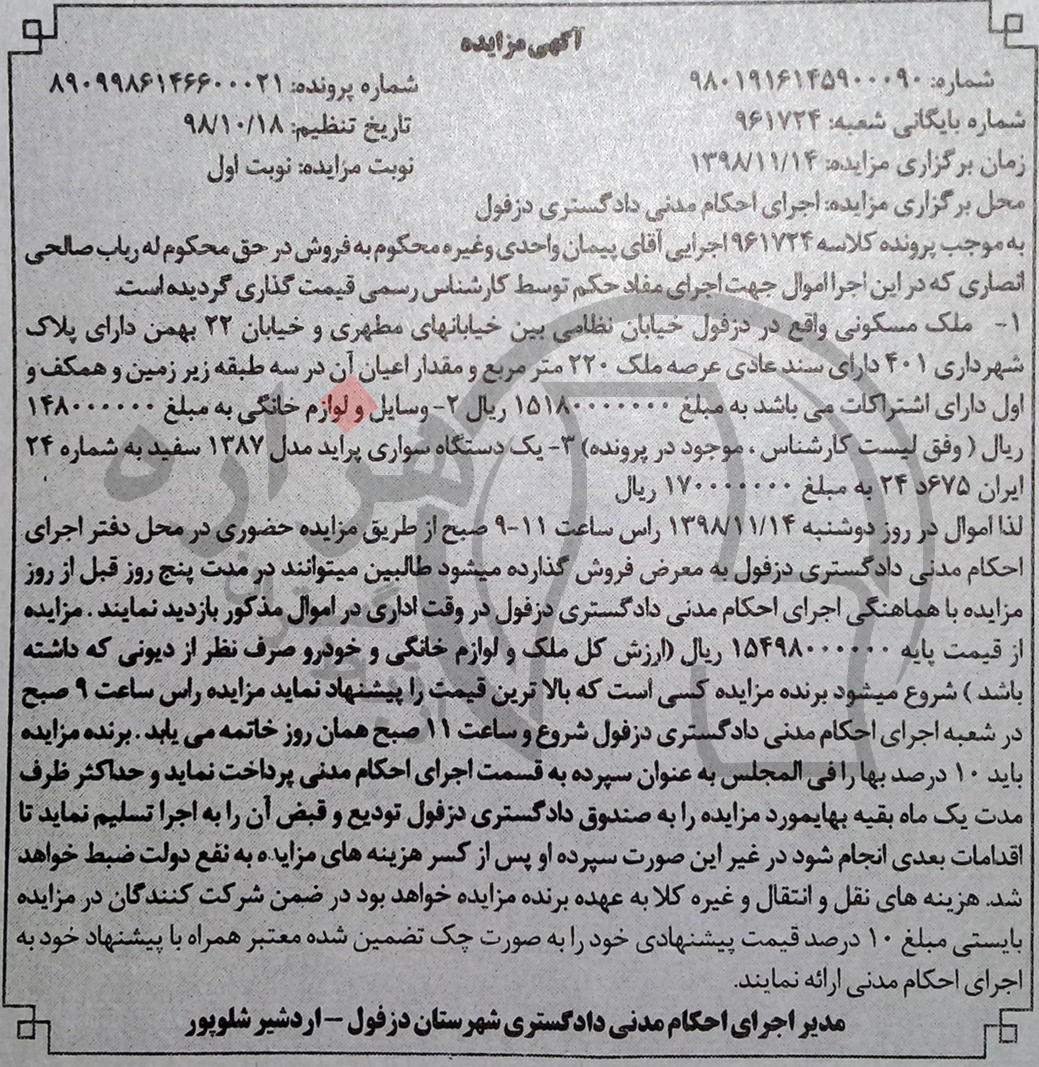 آگهی مزایده
شماره: ۹۸۰۱۹۱۶۱۴۵۹۰۰۰۹۰ شماره پرونده: ۸۹۰۹۹۸۶۱۴۶۶۰۰۰۲۱
شماره بایگانی شعبه: ۹۶۱۷۲۴ تاریخ تنظیم: ۹۸/۱۰/۱۸
زمان برگزاری مزایده: ۱۳۹۸/۱۱/۱۴ نوبت مزایده: نوبت اول
محل برگزاری مزایده: اجرای احکام مدنی دادگستری دزفول
به موجب پرونده کلاسه ۹۶۱۷۲۴ اجرایی آقای پیمان واحدی وغیره محکوم به فروش در حق محکوم له رباب صالحی
انصاری که در این اجرا اموال جهت اجرای مفاد حکم توسط کارشناس رسمی قیمت گذاری گردیده است.
۱- ملک مسکونی واقع در دزفول خیابان نظامی بین خیابانهای مطهری و خیابان ۲۲ بهمن دارای پلاک
شهرداری ۴۰۱ دارای سند عادی عرصه ملک ۲۲۰ متر مربع و مقدار اعیان آن در سه طبقه زیر زمین و همکف و
اول دارای اشتراکات می باشد به مبلغ ۱۵۱۸۰۰۰۰۰۰۰ ریال ۲- وسایل و لوازم خانگی به مبلغ ۱۴۸۰۰۰۰۰۰
ریال ( وفق لیست کارشناس ، موجود در پرونده) ۳- یک دستگاه سواری پراید مدل ۱۳۸۷ سفید به شماره ۲۴
ایران ۶۷۵د ۲۴ به مبلغ ۱۷۰۰۰۰۰۰۰ ریال
لذا اموال در روز دوشنبه ۱۳۹۸/۱۱/۱۴ راس ساعت ۱۱-۹ صبح از طریق مزایده حضوری در محل دفتر اجرای
احکام مدنی دادگستری دزفول به معرض فروش گذارده میشود طالبین میتوانند در مدت پنج روز قبل از روز
مزایده با هماهنگی اجرای احکام مدنی دادگستری دزفول در وقت اداری در اموال مذکور بازدید نمایند . مزایده
از قیمت پایه ۱۵۴۹۸۰۰۰۰۰۰ ریال (ارزش کل ملک و لوازم خانگی و خودرو صرف نظر از دیونی که داشته
باشد ) شروع میشود برنده مزایده کسی است که بالا ترین قیمت را پیشنهاد نماید مزایده راس ساعت ۹ صبح
در شعبه اجرای احکام مدنی دادگستری دزفول شروع و ساعت ۱۱ صبح همان روز خاتمه می یابد . برنده مزایده
باید ۱۰ درصد بها را فی المجلس به عنوان سپرده به قسمت اجرای احکام مدنی پرداخت نماید و حداکثر ظرف
مدت یک ماه بقیه بهایمورد مزایده را به صندوق دادگستری دزفول تودیع و قبض آن را به اجرا تسلیم نماید تا
اقدامات بعدی انجام شود در غیر این صورت سپرده او پس از کسر هزینه های مزایده به نفع دولت ضبط خواهد
شد. هزینه های نقل و انتقال و غیره کلا به عهده برنده مزایده خواهد بود در ضمن شرکت کنندگان در مزایده
بایستی مبلغ ۱۰ درصد قیمت پیشنهادی خود را به صورت چک تضمین شده معتبر همراه با پیشنهاد خود به
اجرای احکام مدنی ارائه نمایند.
مدیر اجرای احکام مدنی دادگستری شهرستان دزفول – اردشیر شلوپور
هزاره